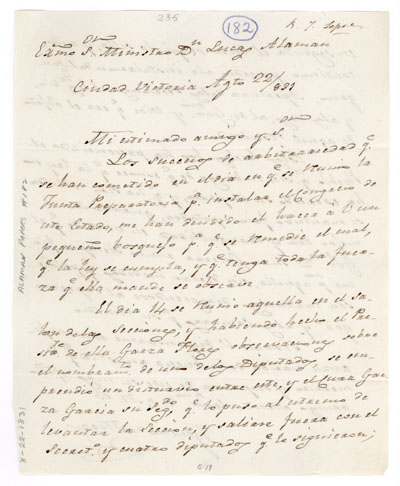 235
182
R. J. Lopez
Exmo Sor Ministro Dn Lucas Alaman
Ciudad Victoria Agto 22/831
Mi estimado amigo y Sor
Los sucesos de arbitrariedad qe
se han cometido en el dia en qe se reunio la
Junta Preparatoria pa instalar el Congreso de
este Estado, me han decidido el hacer a U. un
pequeño bosquejo pa qe se remedie el mal,
qe la ley se cumpla, y qe tenga toda la fuer-
za qe ella manda se obsequie.
El dia 14 se reunio aquella en el Sa-
lon de las Secciones, y habiendo hecho el Pre-
ste de ella Garza Flores observaciones sobre
el nombramto de uno de los Diputados se em-
prendio un disturvio entre este, y el Cura Gar-
za Garcia su Segdo qe lo puso al estremo de
levantar la Seccion, y salirse fuera con el
Secreto y cuatro diputados qe lo siguieron;
ALAMAN PAPERS #182
8-22-1831
G 19